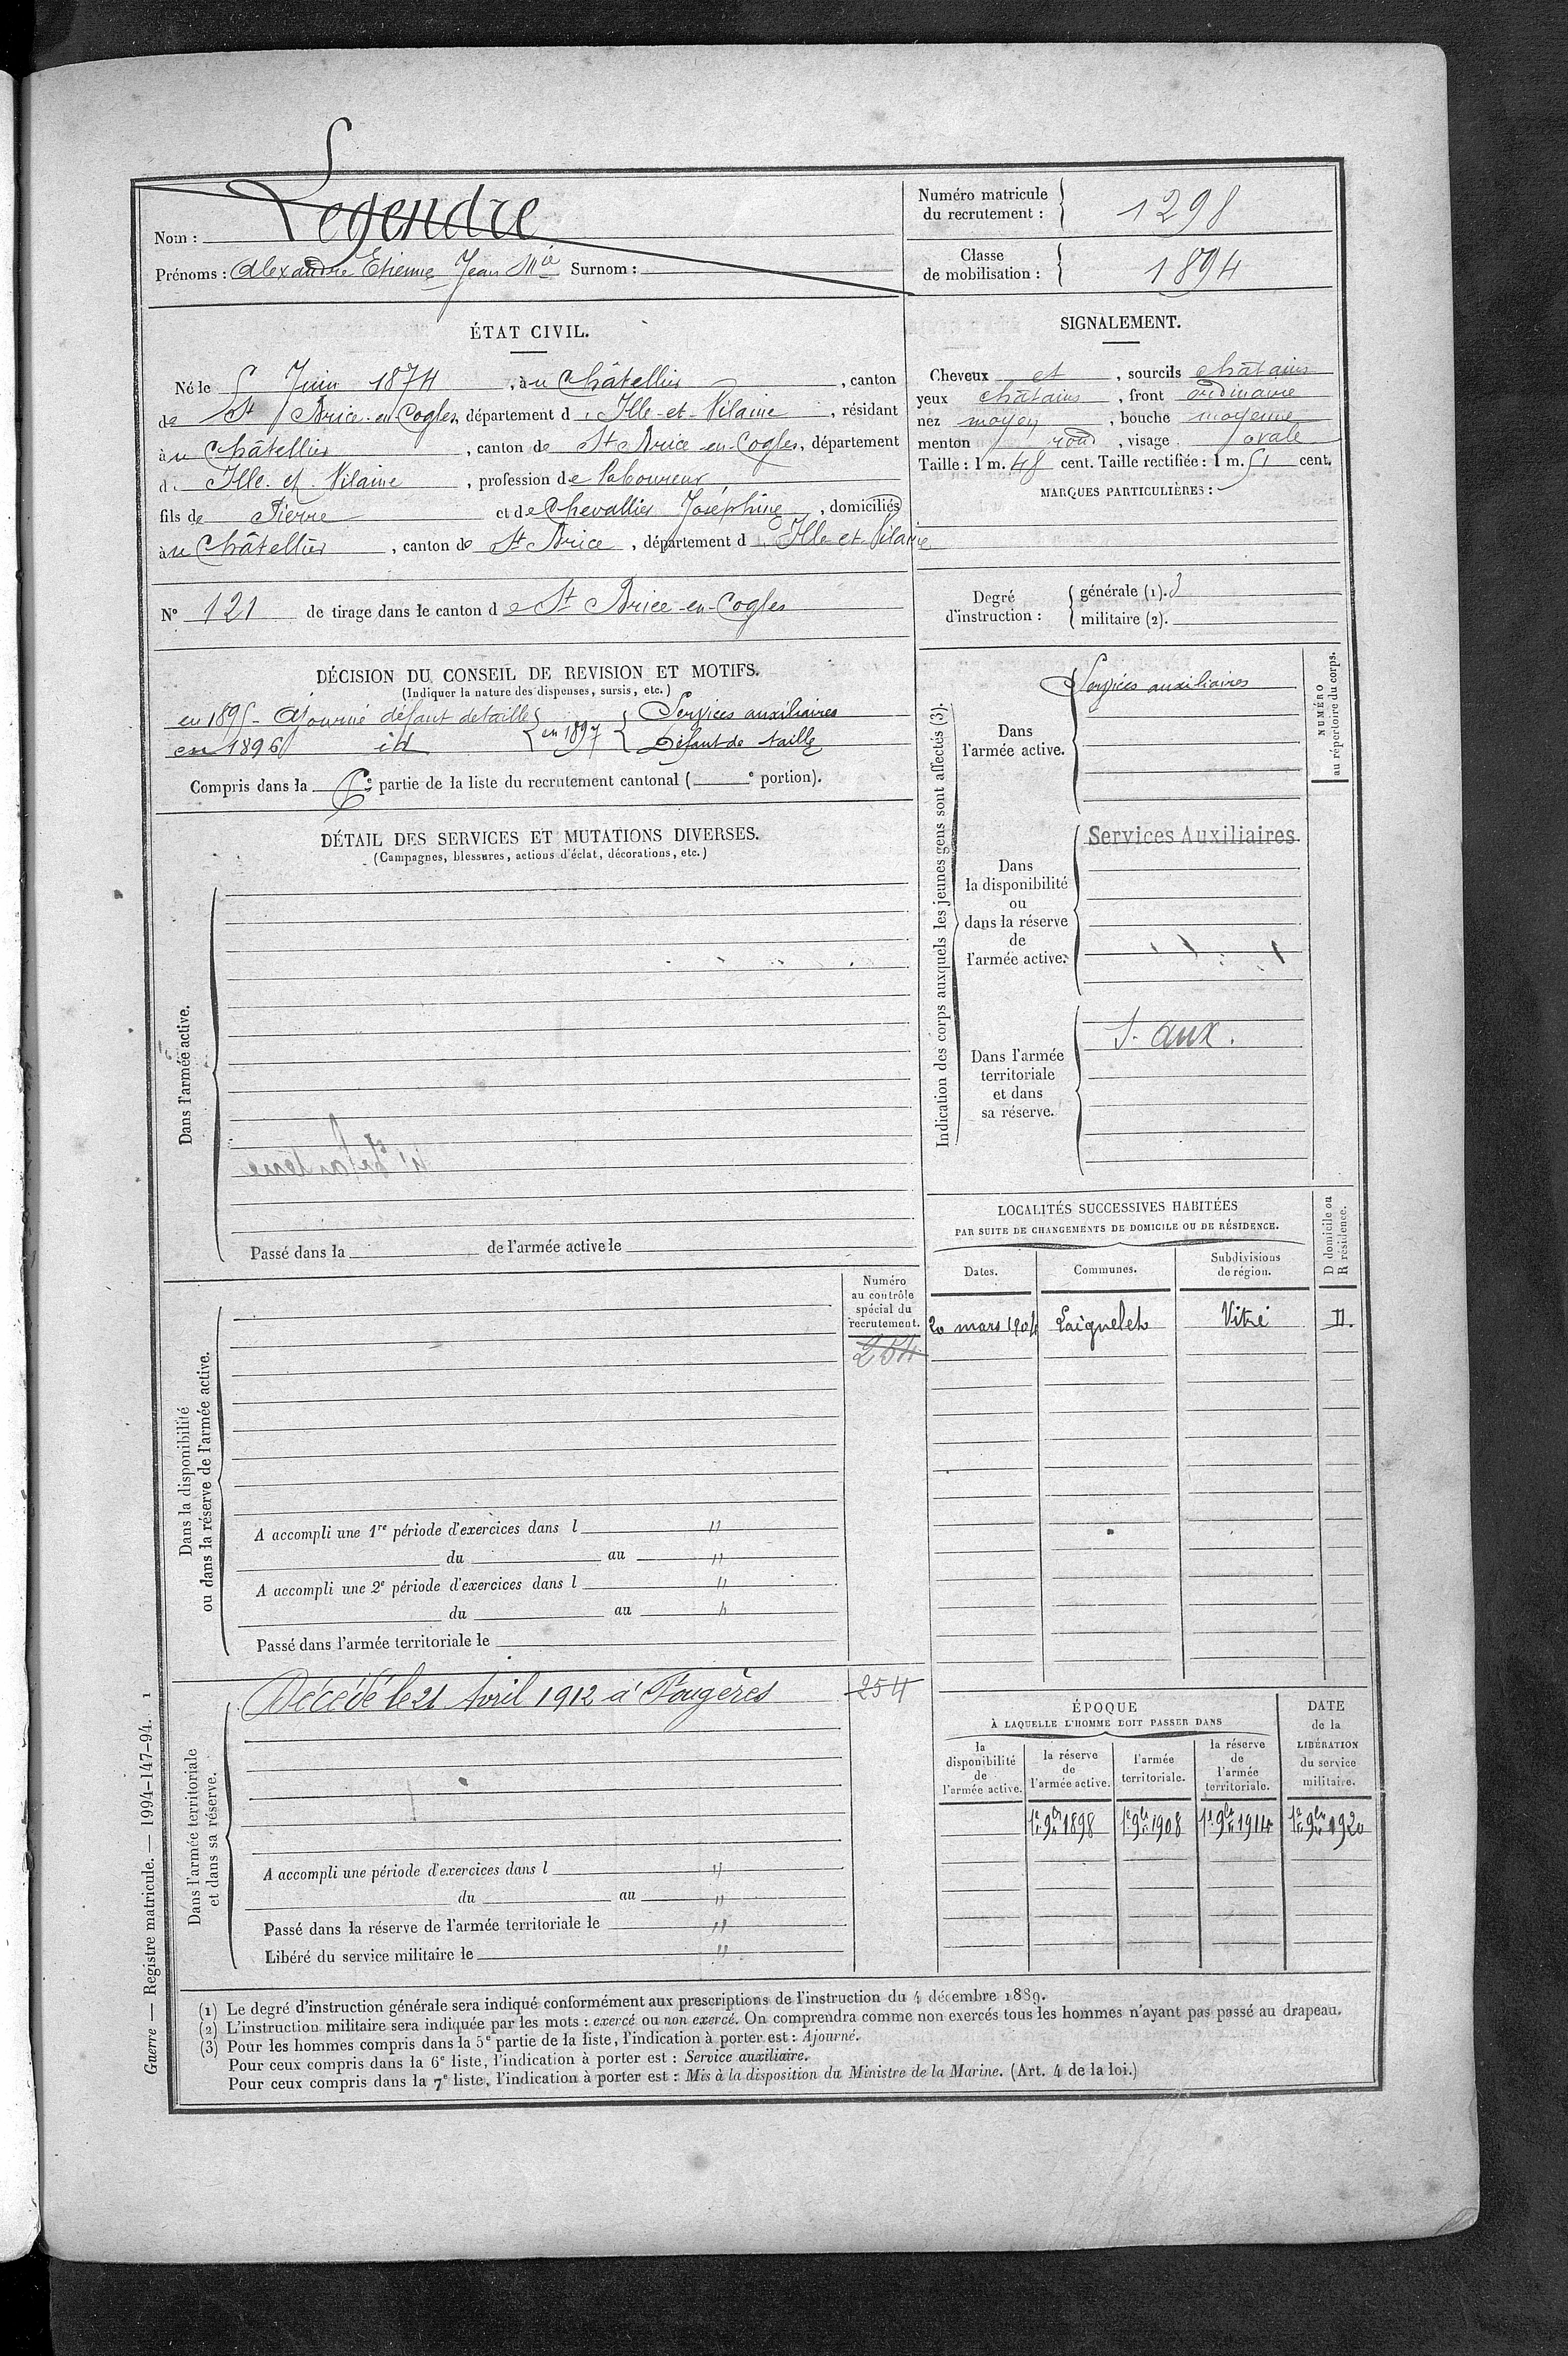 Nom : Legendre
Prénoms : Alexandre Etienne Jean Mie Surnom :
Numéro matricule du recrutement : 1298
Classe de mobilisation : 1894
ÉTAT CIVIL.
Né le 5 Juin 1874, à u Châtellier, canton
de St Brice-en-Cogles, département d Ille-et-Vilaine, résidant
à u Châtellier, canton de St Brice-en-Cogles, département
d Ille-et-Vilaine, profession de laboureur
fils de Pierre et de Chevallier Joséphine, domiciliés
à u Châtellier, canton de St Brice, département d Ille-et-Vilaine
N° 121 de tirage dans le canton d e St Brice-en-Cogles
SIGNALEMENT.
Cheveux et, sourcils châtains
yeux châtains, front ordinaire
nez moyen, bouche moyenne
menton rond, visage ovale
Taille : 1 m. 48 cent. Taille rectifiée : 1 m. 51 cent.
MARQUES PARTICULIÈRES :
Degré d'instruction :
générale (1). 3
militaire (2).
DÉCISION DU CONSEIL DE REVISION ET MOTIFS.
(Indiquer la nature des dispenses, sursis, etc.)
en 1895 - Ajourné défaut de taille
en 1896 id
en 1897
Services auxiliaires
Défaut de taille
Compris dans la 6e partie de la liste du recrutement cantonal ( e portion).
DÉTAIL DES SERVICES ET MUTATIONS DIVERSES.
(Campagnes, blessures, actions d'éclat, décorations, etc.)
Dans l'armée active.
Passé dans la de l'armée active le
Indication des corps auxquels les jeunes gens sont affectés (3).
NUMÉRO
au répertoire du corps.
Dans
l'armée active.
Services auxiliaires
Dans
la disponibilité
ou
dans la réserve
de
l'armée active.
Services Auxiliaires
Dans l'armée
territoriale
et dans
sa réserve.
S. aux.
LOCALITÉS SUCCESSIVES HABITÉES
PAR SUITE DE CHANGEMENTS DE DOMICILE OU DE RÉSIDENCE.
D domicile ou
R résidence.
Dates. Communes. Subdivisions de région.
20 mars 1904 Laignelet Vitré D.
Dans la disponibilité
ou dans la réserve de l'armée active.
Numéro
au contrôle
spécial du
recrutement.
254
A accompli une 1re période d'exercices dans l "
du au "
A accompli une 2e période d'exercices dans l "
du au "
Passé dans l'armée territoriale le
Dans l'armée territoriale
et dans sa réserve.
Décédé le 21 Avril 1912 à Fougères
254
A accompli une période d'exercices dans l "
du au "
Passé dans la réserve de l'armée territoriale le "
Libéré du service militaire le "
ÉPOQUE
À LAQUELLE L'HOMME DOIT PASSER DANS
la disponibilité de l'armée active.
la réserve de l'armée active.
l'armée territoriale.
la réserve de l'armée territoriale.
DATE de la LIBÉRATION du service militaire.
1er 9bre 1898 1er 9bre 1908 1er 9bre 1914 1er 9bre 1920
(1) Le degré d'instruction générale sera indiqué conformément aux prescriptions de l'instruction du 4 décembre 1889.
(2) L'instruction militaire sera indiquée par les mots : exercé ou non exercé. On comprendra comme non exercés tous les hommes n'ayant pas passé au drapeau.
(3) Pour les hommes compris dans la 5e partie de la liste, l'indication à porter est : Ajourné.
Pour ceux compris dans la 6e liste, l'indication à porter est : Service auxiliaire.
Pour ceux compris dans la 7e liste, l'indication à porter est : Mis à la disposition du Ministre de la Marine. (Art. 4 de la loi.)
Guerre — Registre matricule. — 1994-147-94. 1